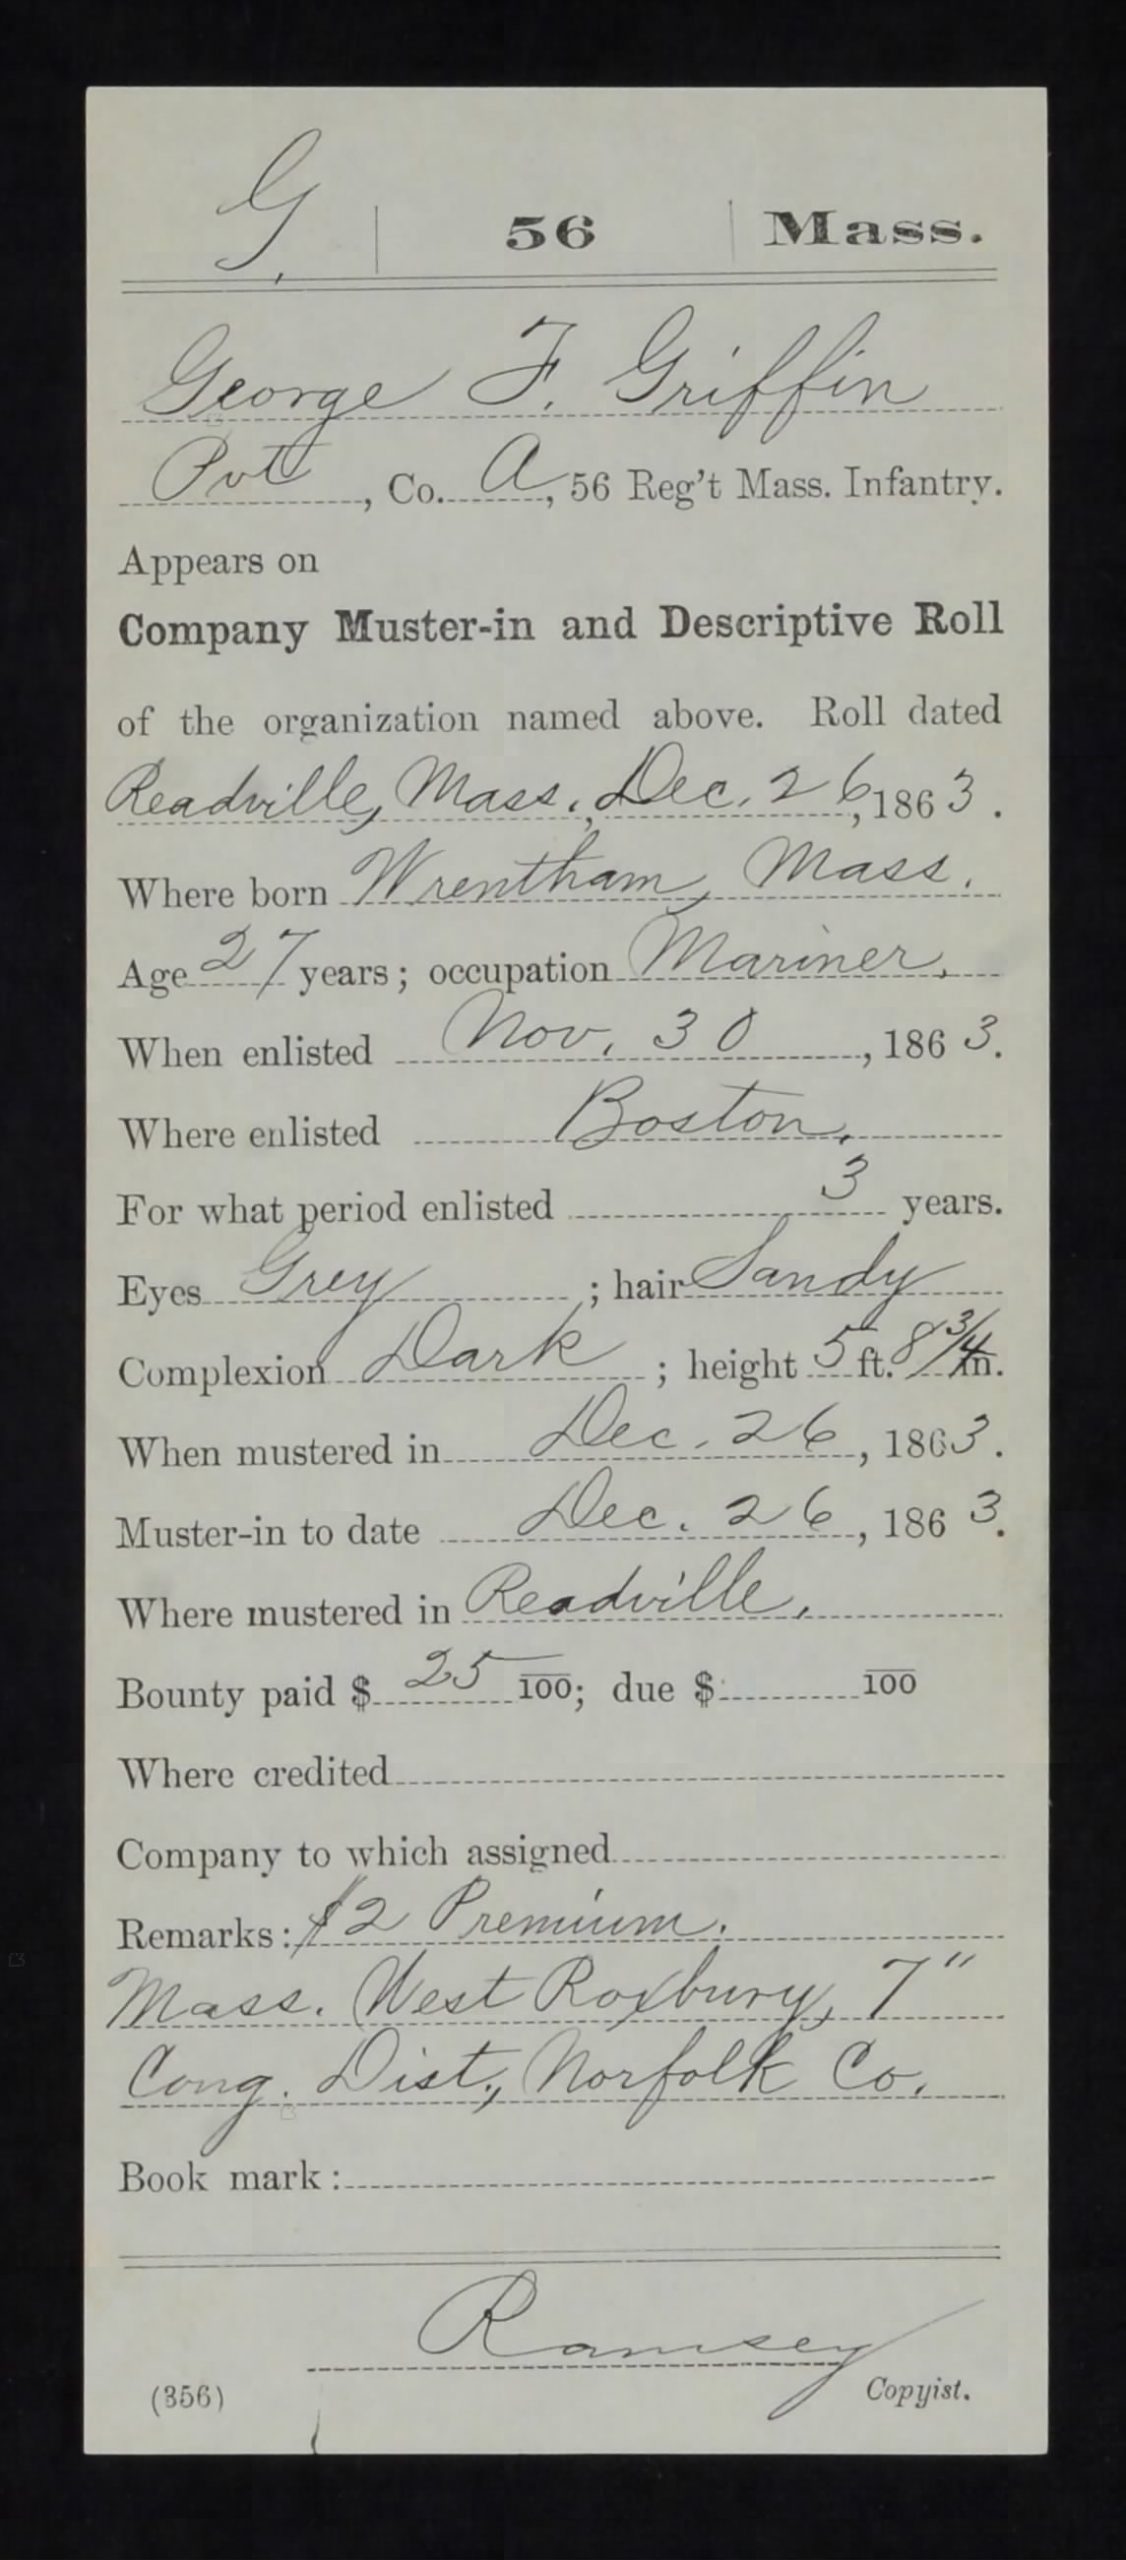 G. | 56 | Mass.
George F. Griffin
Pvt, Co. A, 56 Reg't Mass. Infantry.
Appears on
Company Muster-in and Descriptive Roll
of the organization named above. Roll dated
Readville, Mass., Dec. 26, 1863.
Where born Wrentham, Mass.
Age 27 years; occupation Mariner.
When enlisted Nov. 30, 1863.
Where enlisted Boston.
For what period enlisted 3 years.
Eyes Grey; hair Sandy
Complexion Dark; height 5 ft. 8 3/4 in.
When mustered in Dec. 26, 1863.
Muster-in to date Dec. 26, 1863.
Where mustered in Readville.
Bounty paid $ 25 — 100; due $ 100
Where credited
Company to which assigned
Remarks: $2 Premium.
Mass. West Roxbury, 7"
Cong. Dist., Norfolk Co.
Book mark:
Ramsey
(356) Copyist.